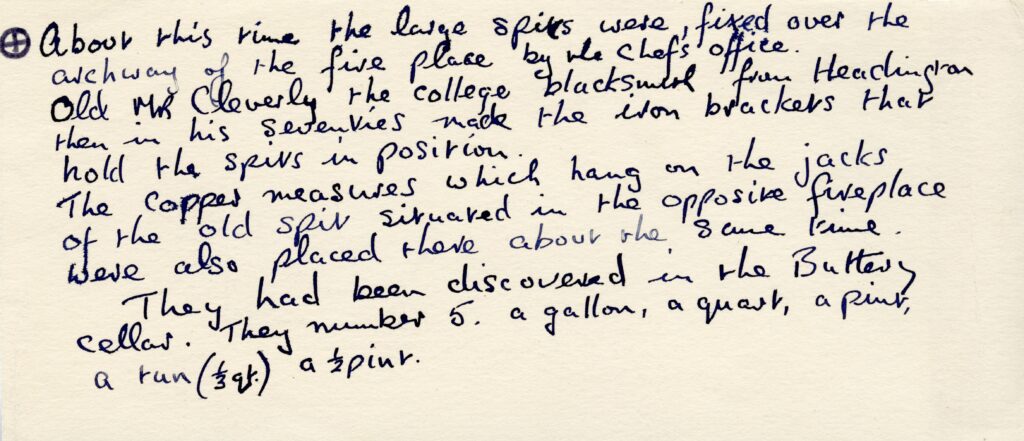 ⊕ About this time the large spits were, fixed over the
archway of the fire place by the Chef's office.
Old Mr Cleverly the college blacksmith from Headington
then in his seventies made the iron brackets that
hold the spits in position.
The copper measures which hang on the jacks
of the old spit situated in the opposite fireplace
were also placed there about the same time.
They had been discovered in the Buttery
cellar. They number 5. a gallon, a quart, a pint,
a tun (⅓ qt.) a ½ pint.